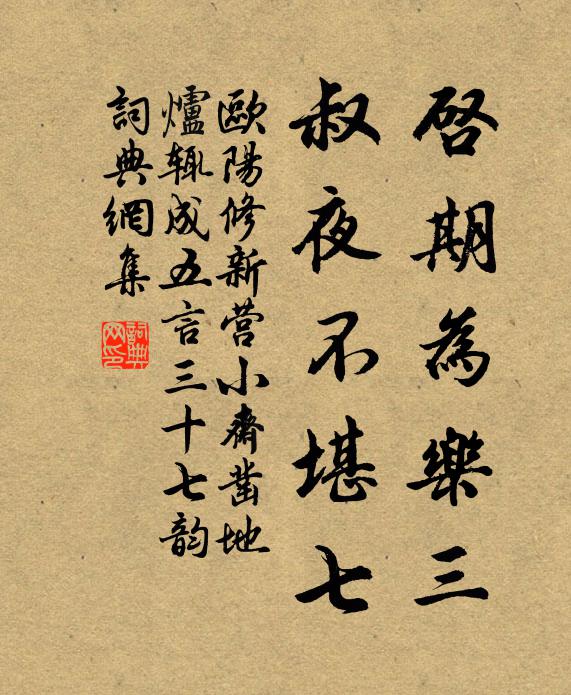 啓期為樂三
叔夜不堪七
歐陽修新營小齋凿地
爐輒成五言三十七韵
詞典網集
詞典网印